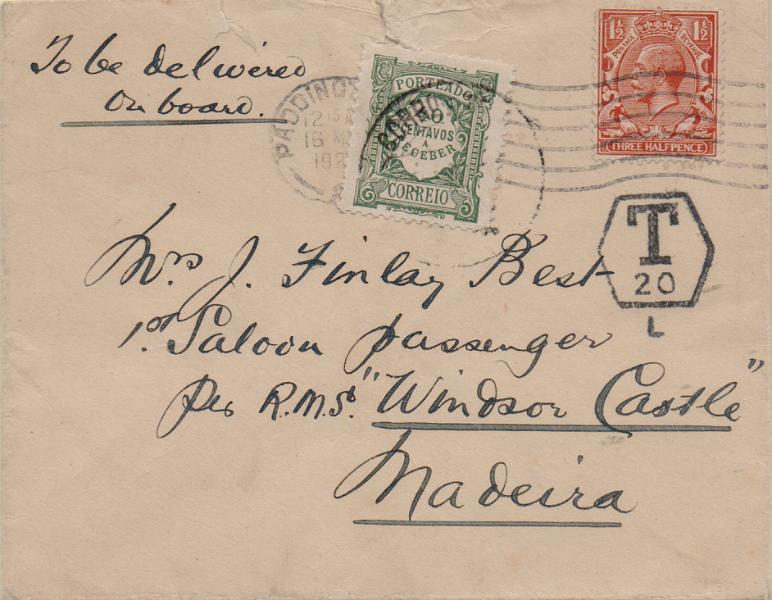 To be delivered
on board.
PADDING
12 15 A
16 M
192
PORTEADO
CENTAVOS
A
RECEBER
CORREIO
CORREIO
1½ 1½
POSTAGE REVENUE
THREE HALFPENCE
T
20
L
Mrs J. Finlay Best
1st Saloon passenger
per R.M.S. "Windsor Castle"
Madeira